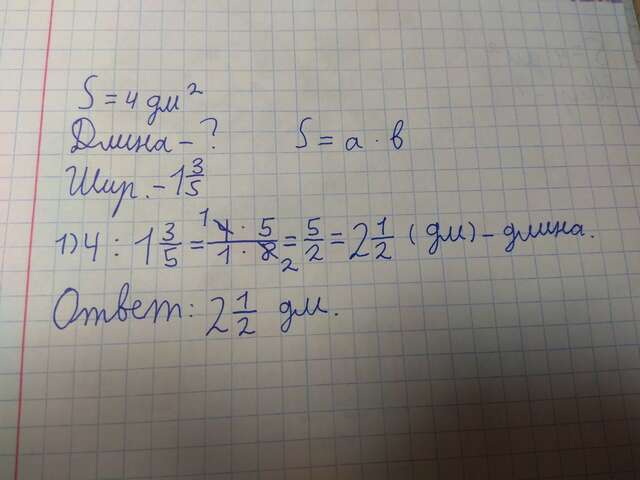 S = 4 дм²
Длина - ? S = а · в
Шир. - 1 3/5
1) 4 : 1 3/5 = 4 · 5 / 1 · 8 = 5/2 = 2 1/2 (дм) - длина.
Ответ: 2 1/2 дм.